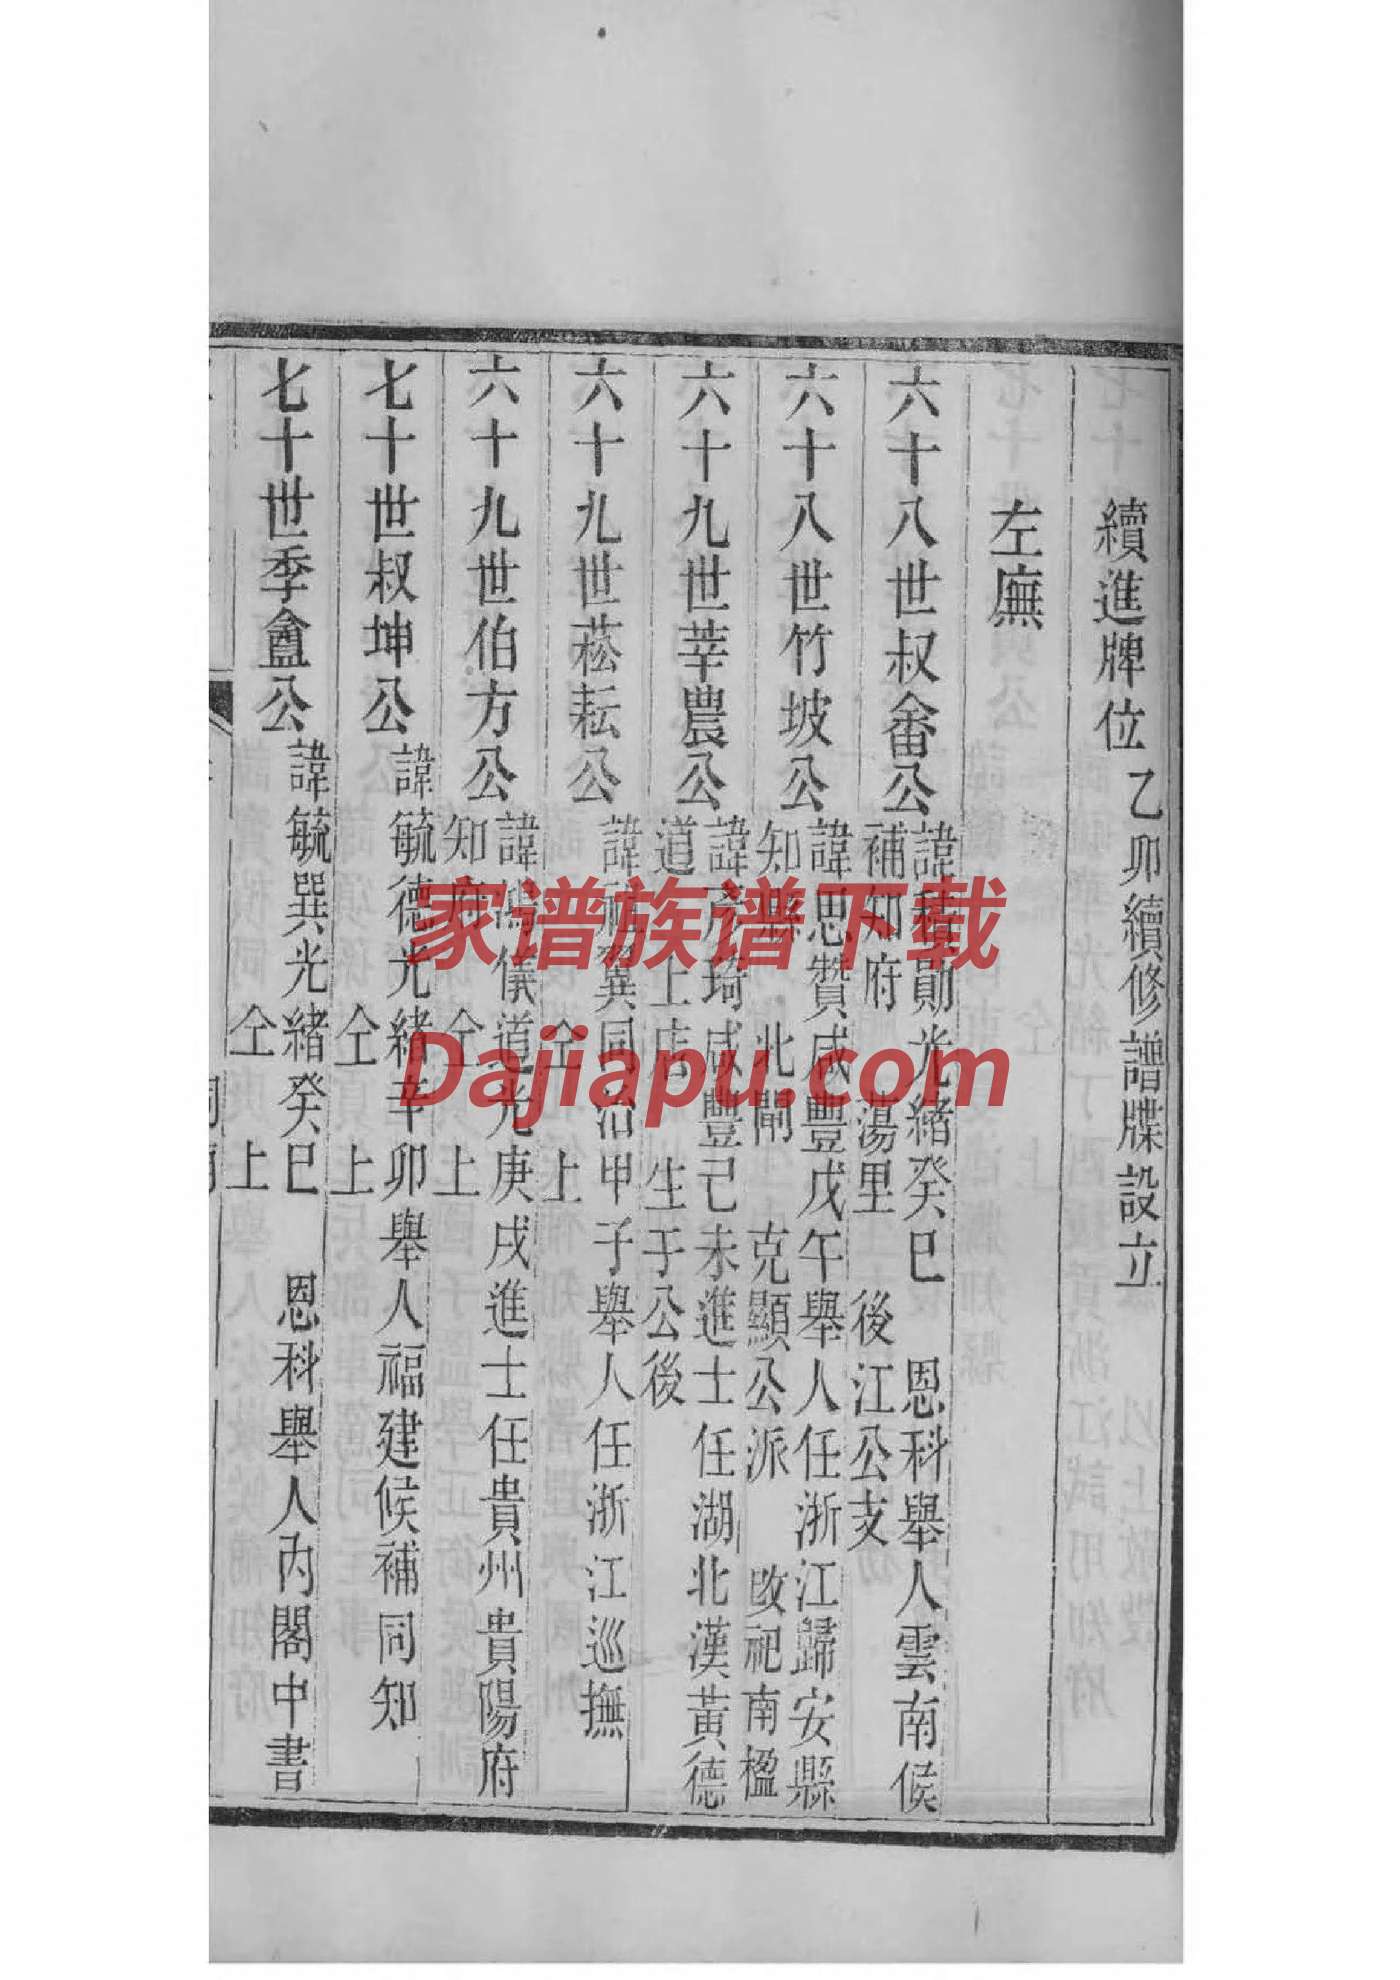 續進牌位 乙卯續修譜牒設立
左廡
六十八世叔畬公 諱積勛光緒癸巳 恩科舉人雲南候
補知府 蕩里 後江公支
六十八世竹坡公 諱思贊咸豐戊午舉人任浙江歸安縣
知縣 北閘 克顯公派 改祀南楹
六十九世莘農公 諱彥琦咸豐己未進士任湖北漢黃德
道 上店 生于公後
六十九世菘耘公 諱祖翼同治甲子舉人任浙江巡撫
仝 上
六十九世伯方公 諱鴻儀道光庚戌進士任貴州貴陽府
知府 仝 上
七十世叔坤公 諱毓德光緒辛卯舉人福建候補同知
仝 上
七十世季盦公 諱毓巽光緒癸巳 恩科舉人內閣中書
仝 上
家谱族谱下载
Dajiapu.com